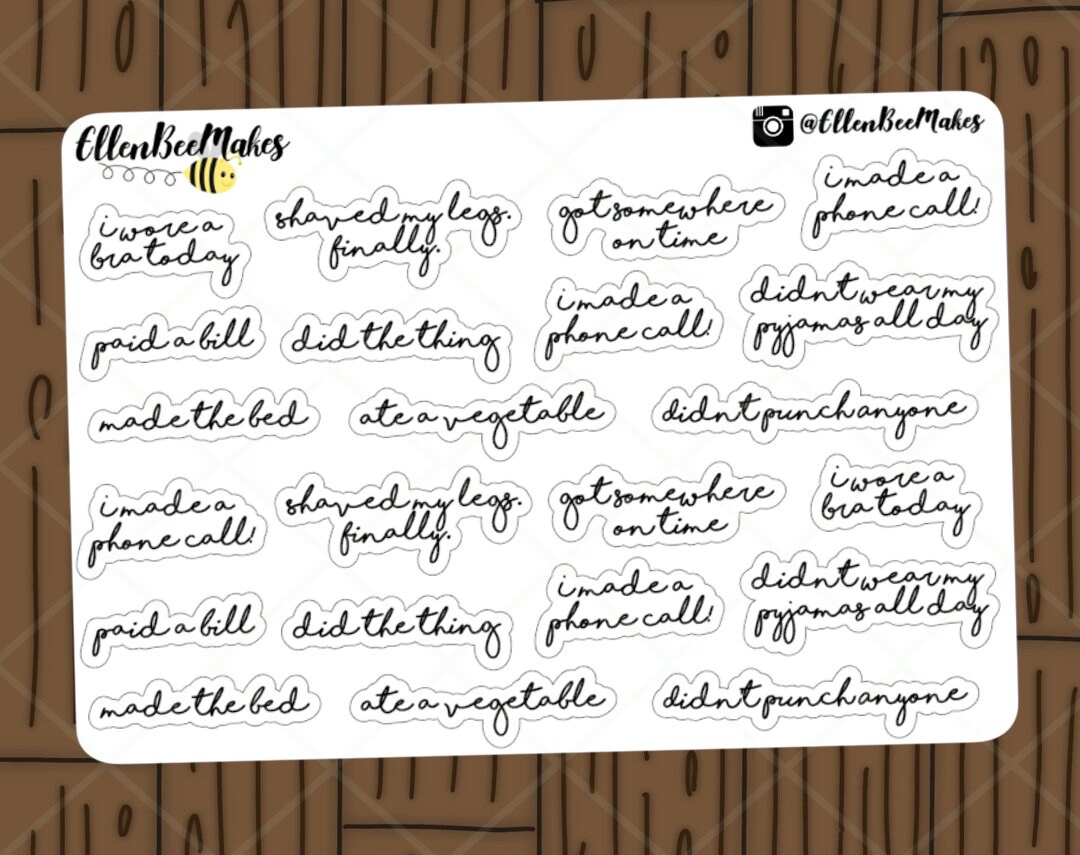 EllenBeeMakes
@EllenBeeMakes
i wore a
bra today
shaved my legs.
finally.
got somewhere
on time
i made a
phone call!
paid a bill
did the thing
i made a
phone call!
didn't wear my
pyjamas all day
made the bed
ate a vegetable
didn't punch anyone
i made a
phone call!
shaved my legs.
finally.
got somewhere
on time
i wore a
bra today
paid a bill
did the thing
i made a
phone call!
didn't wear my
pyjamas all day
made the bed
ate a vegetable
didn't punch anyone